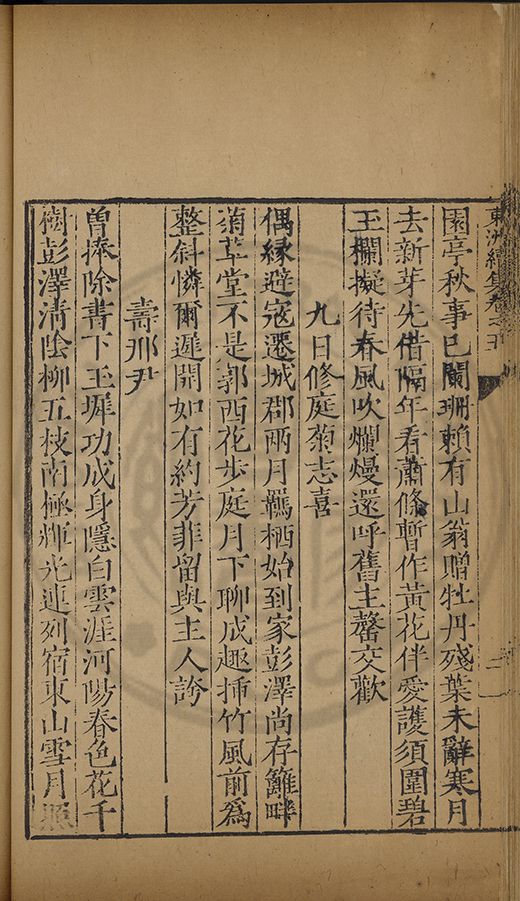 東洲續集卷之五
園亭秋事已闌珊賴有山翁贈牡丹殘葉未辭寒月
去新芽先借隔年看蕭條暫作黃花伴愛護須圍碧
玉欄擬待春風吹爛熳還呼舊主罄交歡
九日修庭菊志喜
偶緣避寇遷城郡兩月羈栖始到家彭澤尚存籬畔
菊草堂不是郭西花步庭月下聊成趣揷竹風前爲
整斜憐爾遲開如有約芳菲留與主人誇
壽邢尹
曾捧除書下玉墀功成身隱白雲涯河陽春色花千
樹彭澤清陰柳五枝南極輝光連列宿東山雪月照